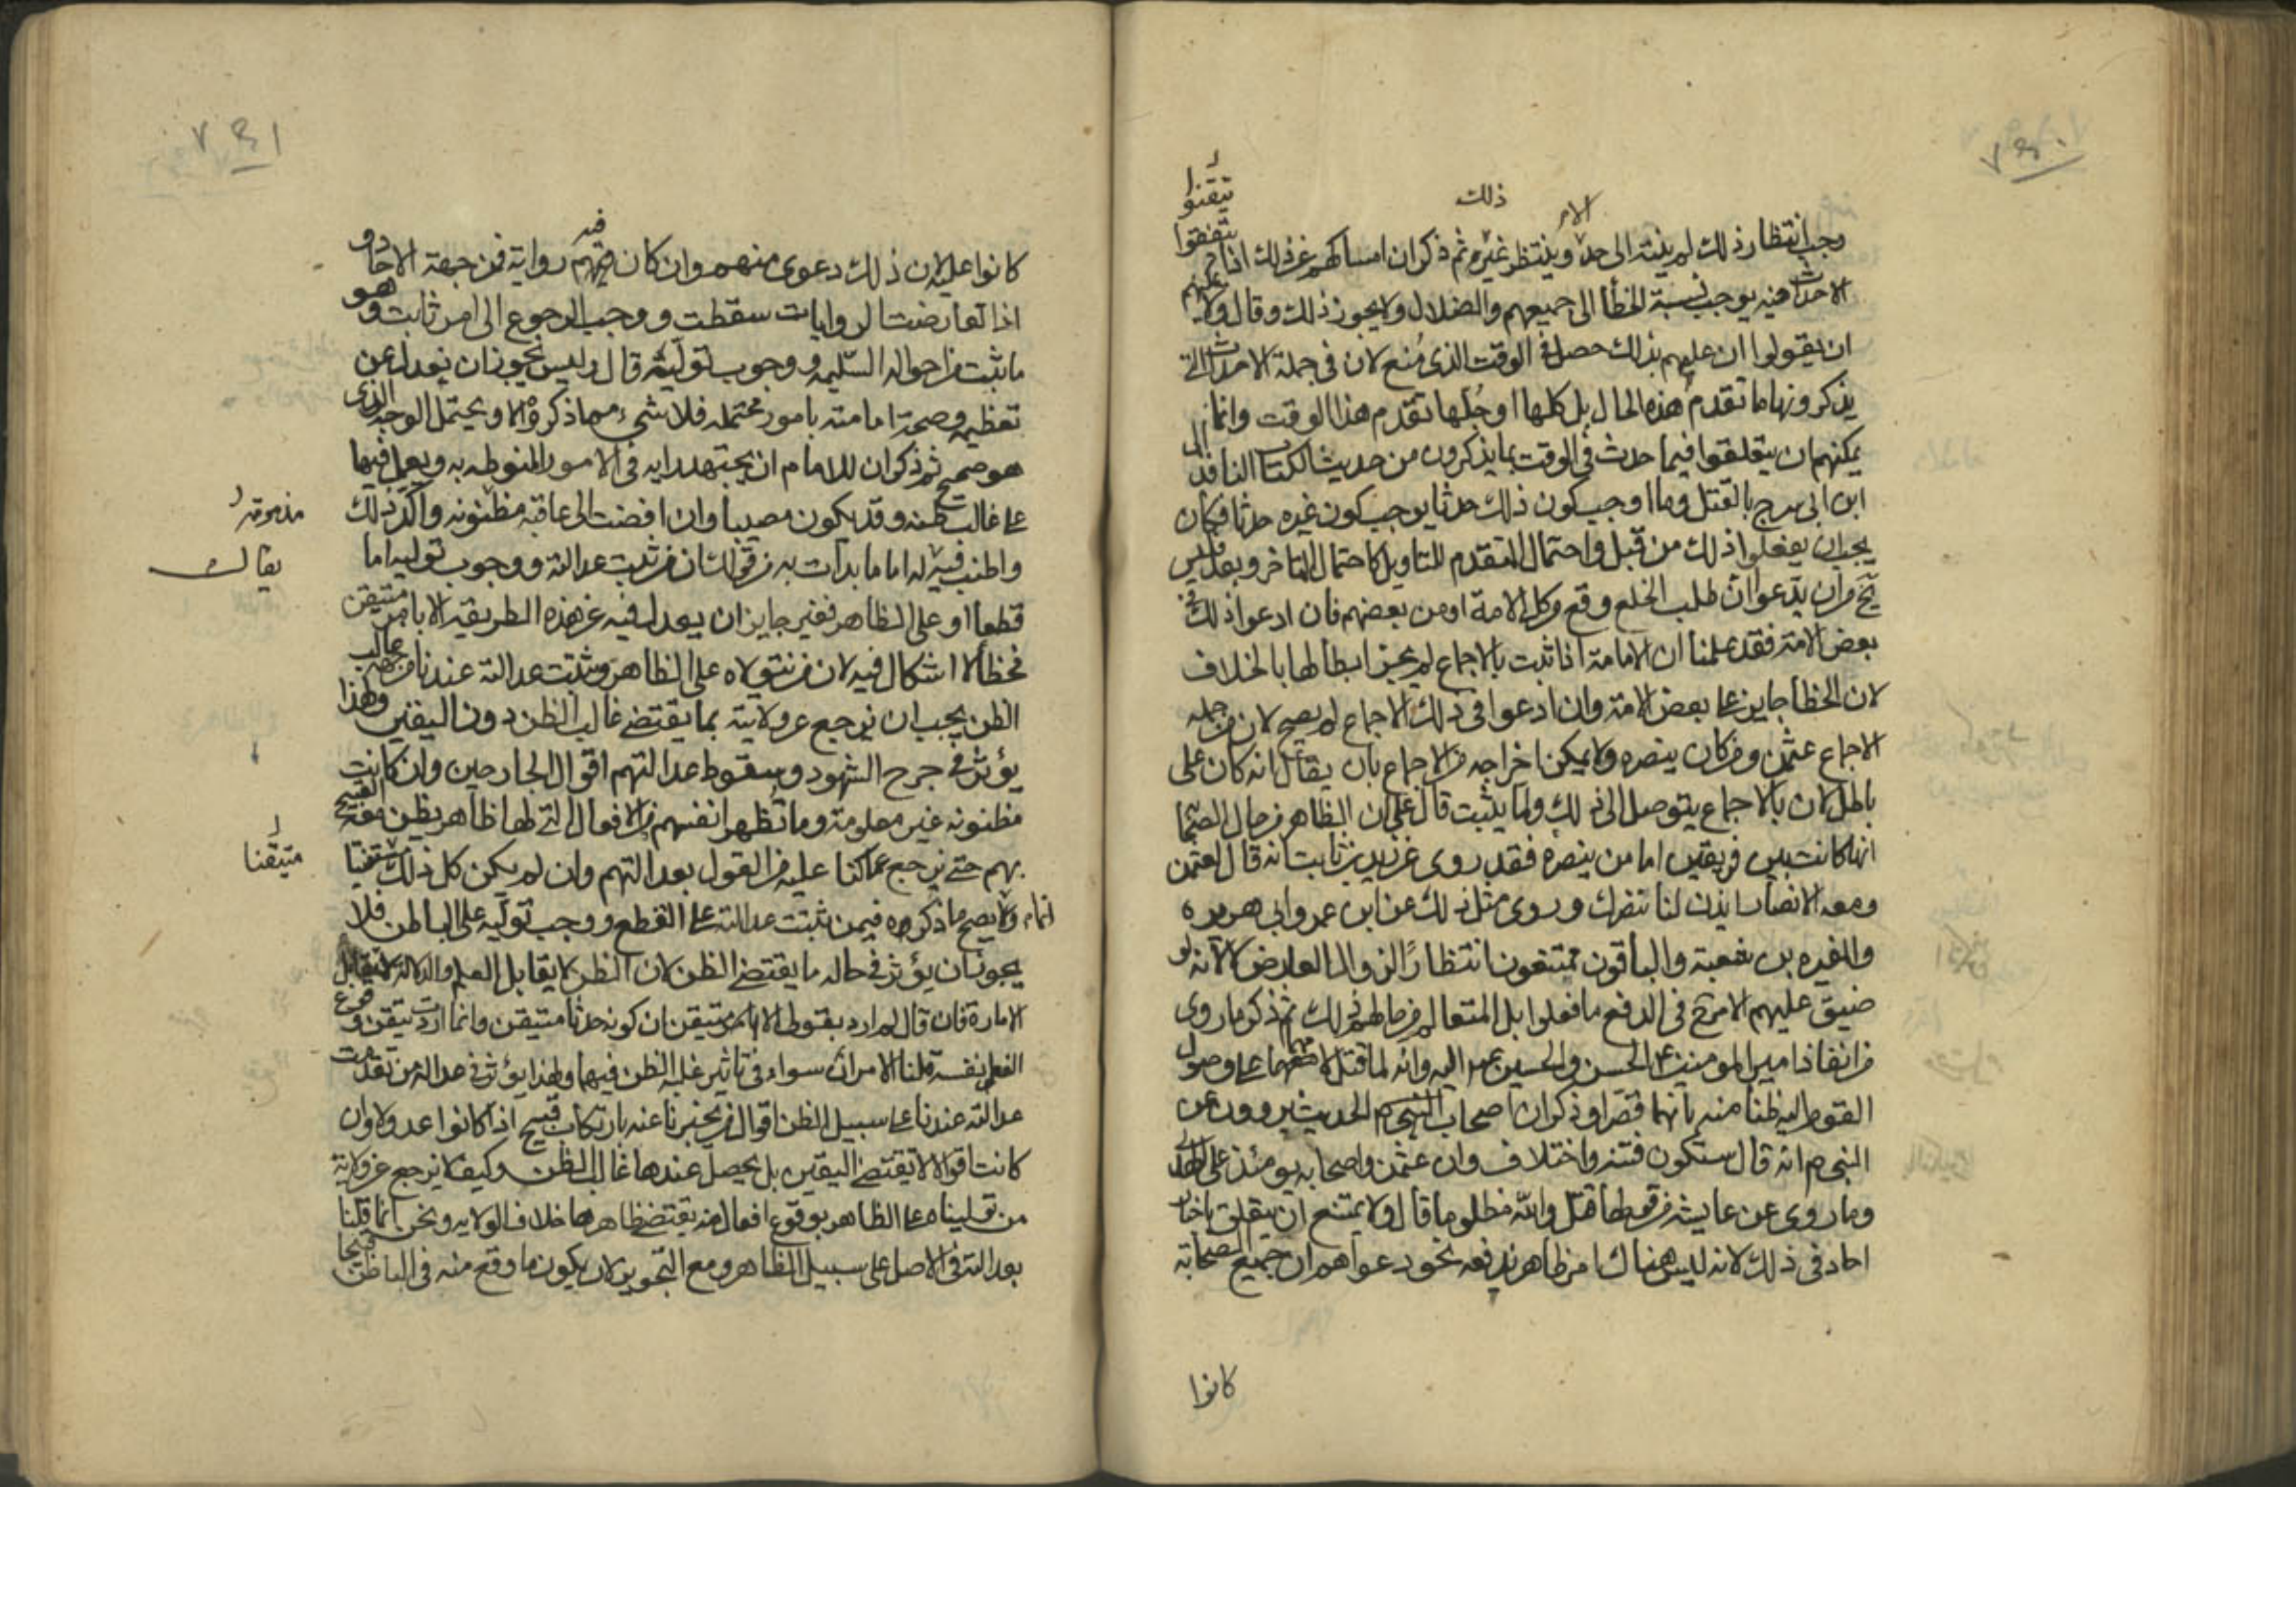 ٧٤٠
ذلك
الامر
تيقنوا
يتفقوا
وجب انتظار ذلك لم ينته الى حد وينتظر غيره ثم ذكر ان امساكهم عن ذلك اذا
الاحداث منه يوجب نسبة الخطأ الى جميعهم والضلال ولا يجوز ذلك وقال ولا يمكنهم
ان يقولوا ان علمهم بذلك حصل في الوقت الذي مُنع لان في جملة الاحداث التي
يذكرونها ما تقدم هذه الحال بل كلها او جُلها تقدم هذا الوقت وانما
يمكنهم ان يتعلقوا فيما حدث في الوقت بما يذكرون من حديث الكتاب النافذ الى
ابن ابي سرح بالقتل وما اوجب كون ذلك حدثا يوجب كون غيره حدثا فكان
يجب ان يفعلوا ذلك من قبل واحتمال المتقدم للتاويل كاحتمال المتاخر وبعد فليس
يخ من ان يدّعوا انّ طلب الخلع وقع من كل الامة او من بعضهم فان ادعوا ذلك في
بعض الامة فقد علمنا ان الامامة اذا ثبت بالاجماع لم يجز ابطالها بالخلاف
لان الخطأ جايز على بعض الامة وان ادعوا في ذلك الاجماع لم يصح لان من جملة
الاجماع عثمن ومن كان ينصره ولا يمكن اخراجه من الاجماع بان يقال انه كان على
باطل لان بالاجماع يتوصل الى ذلك ولما يثبت قال على ان الظاهر من حال الصحابة
انها كانت بين فريقين اما من ينصره فقد روى عن زيد بن ثابت انه قال لعثمن
ومعه الانصار ايذن لنا ننصرك وروى مثل ذلك عن ابن عمر وابي هريره
والمغيره بن شعبة والباقون ممتنعون انتظاراً لزوال العارض لا لانه لو
ضيق عليهم الامر في الدفع ما فعلوا بل المتعالم من حالهم ذلك ثم ذكر ما روى
من انفاذ امير المومنين ع الحسن والحسين ع اليه وانه لما قتل لامهما على وصول
القوم اليه ظنا منه بانهما قصّرا وذكر ان اصحاب الحديث يروون عن
النبي ص انه قال ستكون فتنة واختلاف وان عثمن واصحابه يومئذ على الهدى
وما روى عن عايشه من قولها قتل والله مظلوما قال ولا يمتنع ان يتعلق باخبار
احاد في ذلك لانه ليس هناك امر ظاهر يدفعه نحو دعواهم ان جميع الصحابة
كانوا
٧٤١
فيه
كانوا عليه لان ذلك دعوى منهم وان كان فيهم رواية فمن جهة الاحاد و
اذا تعارضت الروايات سقطت ووجب الرجوع الى امر ثابت وهو
ما ثبت من احواله السّليمه ووجوب توليه قال وليس يجوز ان يعدل عن
تعظيمه وصحة امامته بامور محتمله فلا شيء مما ذكروه الا ويحتمل الوجه الذي
هو صحيح ثم ذكر ان للامام ان يجتهد رايه في الامور المنوطه به ويعمل فيها
على غالب ظنه وقد يكون مصيبا وان افضت الى عاقبه مظنونه واكّد ذلك
مذمومة
واطنب فيه يقال له اما ما بدأت به من قولك ان من ثبت عدالته ووجوب توليه اما
يقالـ
قطعا او على الظاهر فغير جايز ان يعدل فيه عن هذه الطريقة الا بامر متيقن
فخطأ لا اشكال فيه لان من نتولاه على الظاهر وثبتت عدالته عندنا من جهة غالب
الظن يجب ان نرجع عن ولايته بما يقتضي غالب الظن دون اليقين ولهذا
يؤثر في جرح الشهود وسقوط عدالتهم اقوال الجارحين وان كانت
مظنونه غير معلومة وما تُظهر انفسهم من الافعال التي لها ظاهر يظن معه القبيح
بهم حتى نرجع عما كنا عليه من القول بعدالتهم وان لم يكن كل ذلك متيقنا
متيقّنا
انما
ولا يصح ما ذكروه فيمن ثبتت عدالته على القطع ووجب توليه على الباطن فلا
يجوز ان يؤثر في حاله ما يقتضي الظن لان الظن لا يقابل العلم والدلالة لا تقابل
الامارة فان قال لم ارد بقولى الا بامر متيقن ان كونه حدثا متيقن وانما اردت تيقن وقوع
الفعل نفسه قلنا الامران سواء في تاثير غلبه الظن فيهما ولهذا يؤثر في عدالة من تقدمت
عدالته عندنا على سبيل الظن اقوال من يخبرنا عنه بارتكاب قبيح اذا كانوا عدولا وان
كانت اقوالا لا تقتضي اليقين بل يحصل عندها غالب الظن وكيف لا نرجع عن ولاية
من توليناه على الظاهر بوقوع افعال منه يقتضي ظاهرها خلاف الولايه ونحن انما قلنا
بعدالته في الاصل على سبيل الظاهر ومع التجويز لان يكون ما وقع منه في الباطن قبيحا